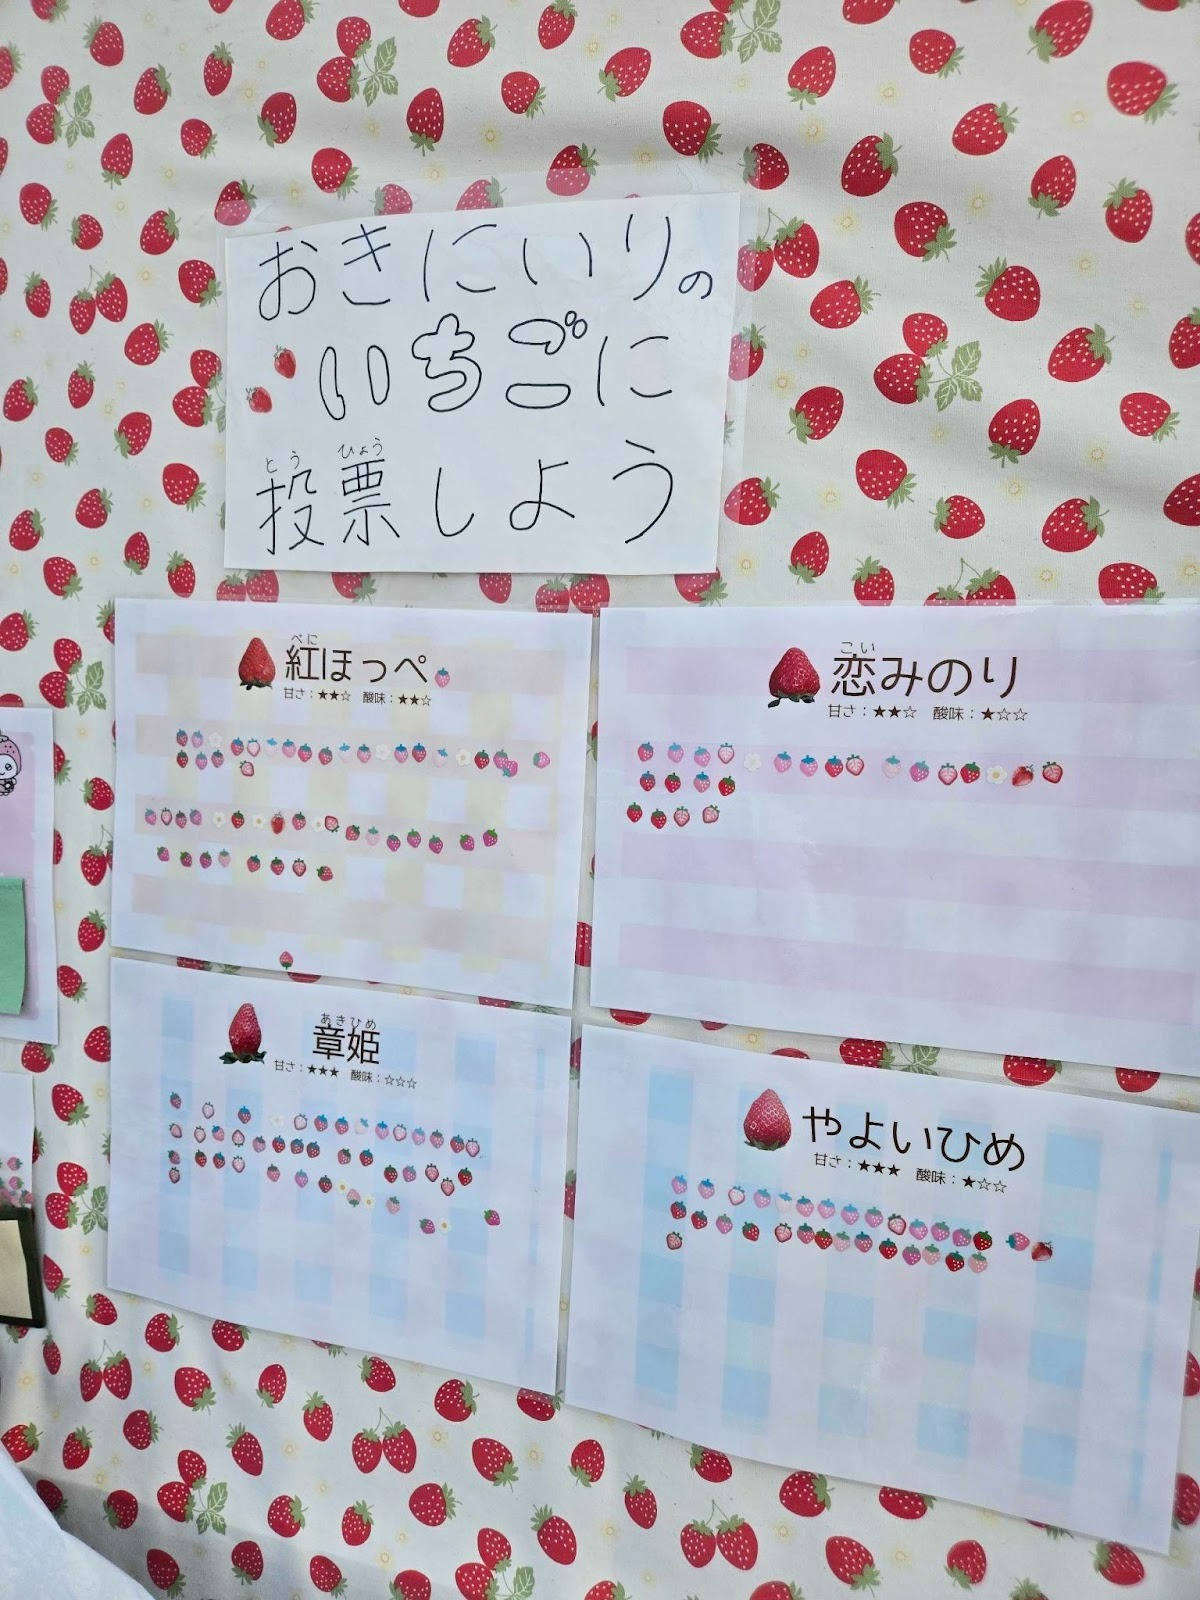 おきにいりの
いちごに
とう ひょう
投票しよう
べに
紅ほっぺ
甘さ:★★☆ 酸味:★★☆
こい
恋みのり
甘さ:★★☆ 酸味:★☆☆
あきひめ
章姫
甘さ:★★★ 酸味:☆☆☆
やよいひめ
甘さ:★★★ 酸味:★☆☆